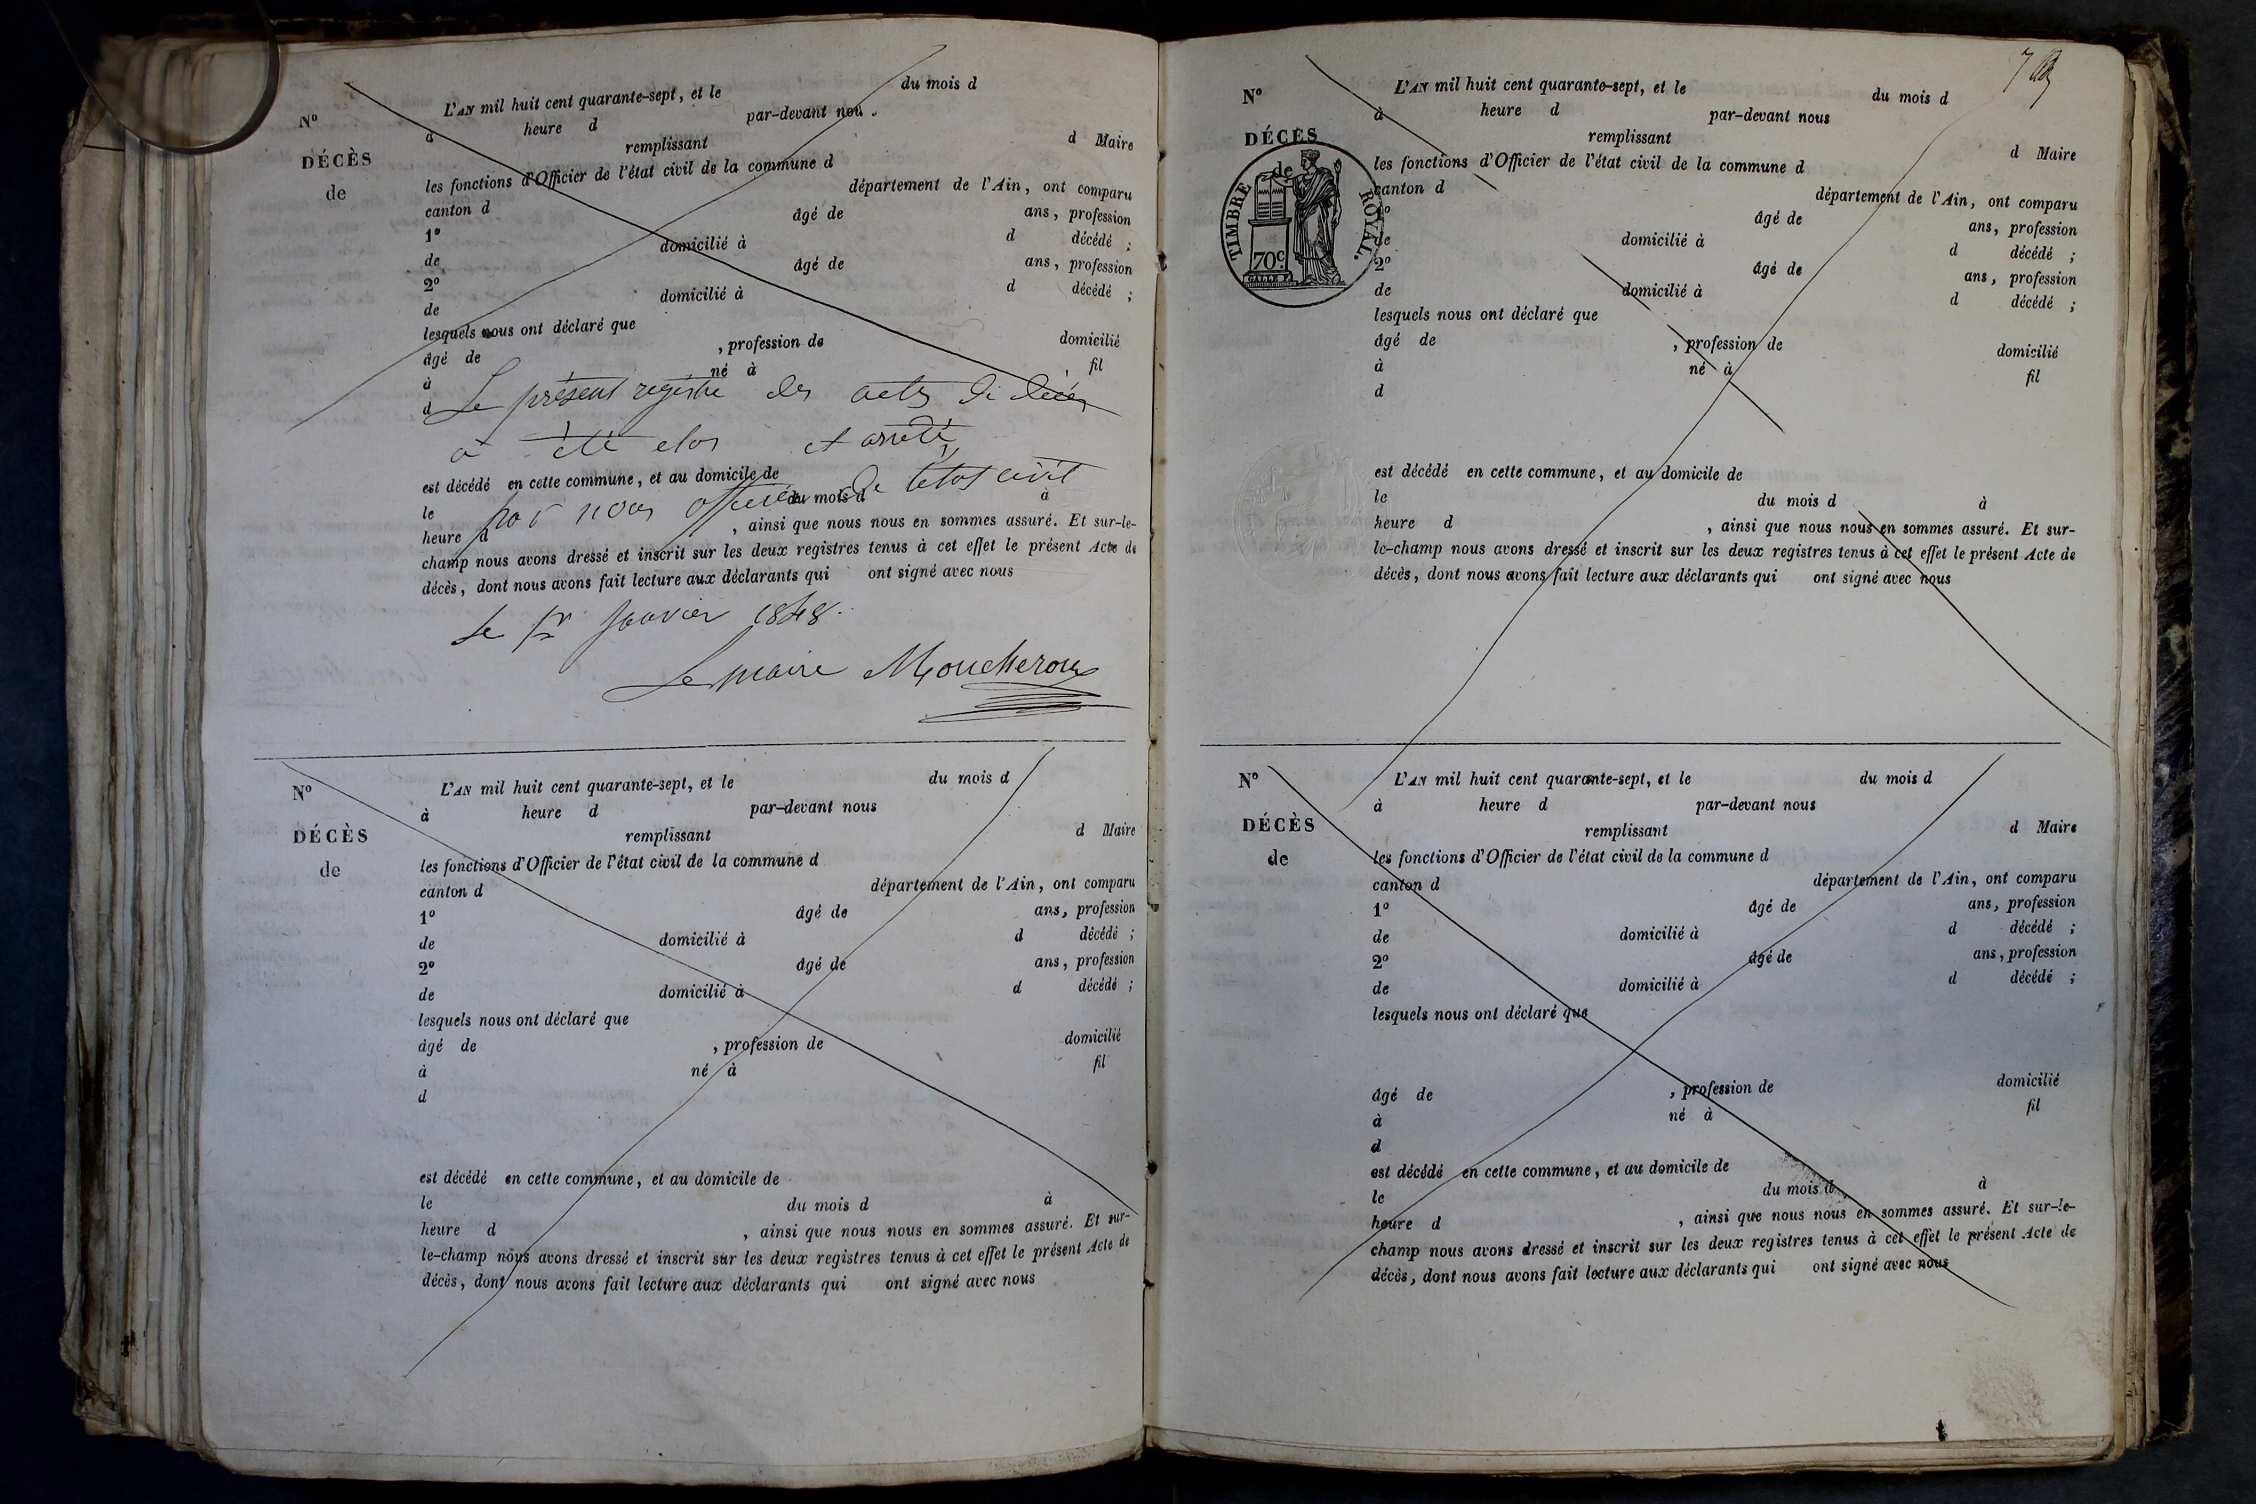 L'AN mil huit cent quarante-sept, et le du mois d
Nº à heure d par-devant nou
DÉCÈS remplissant d Maire
de les fonctions d'Officier de l'état civil de la commune d
canton d département de l'Ain, ont comparu
1º âgé de ans, profession
de domicilié à d décédé ;
2º âgé de ans, profession
de domicilié à d décédé ;
lesquels nous ont déclaré que
âgé de , profession de domicilié
à né à fil
d
Le présent registre des actes de décès
a été clos et arrêté
est décédé en cette commune, et au domicile de
par nous officier de l'état civil
le du mois d à
heure d , ainsi que nous nous en sommes assuré. Et sur-le-
champ nous avons dressé et inscrit sur les deux registres tenus à cet effet le présent Acte de
décès, dont nous avons fait lecture aux déclarants qui ont signé avec nous
Le 1er Janvier 1848.
Le maire Moucheroux
L'AN mil huit cent quarante-sept, et le du mois d
Nº à heure d par-devant nous
DÉCÈS remplissant d Maire
de les fonctions d'Officier de l'état civil de la commune d
canton d département de l'Ain, ont comparu
1º âgé de ans, profession
de domicilié à d décédé ;
2º âgé de ans, profession
de domicilié à d décédé ;
lesquels nous ont déclaré que
âgé de , profession de domicilié
à né à fil
d
est décédé en cette commune, et au domicile de
le du mois d à
heure d , ainsi que nous nous en sommes assuré. Et sur-
le-champ nous avons dressé et inscrit sur les deux registres tenus à cet effet le présent Acte de
décès, dont nous avons fait lecture aux déclarants qui ont signé avec nous
L'AN mil huit cent quarante-sept, et le du mois d
Nº à heure d par-devant nous
DÉCÈS remplissant d Maire
de les fonctions d'Officier de l'état civil de la commune d
canton d département de l'Ain, ont comparu
TIMBRE ROYAL.
70 c.
1º âgé de ans, profession
de domicilié à d décédé ;
2º âgé de ans, profession
de domicilié à d décédé ;
lesquels nous ont déclaré que
âgé de , profession de domicilié
à né à fil
d
est décédé en cette commune, et au domicile de
le du mois d à
heure d , ainsi que nous nous en sommes assuré. Et sur-
le-champ nous avons dressé et inscrit sur les deux registres tenus à cet effet le présent Acte de
décès, dont nous avons fait lecture aux déclarants qui ont signé avec nous
L'AN mil huit cent quarante-sept, et le du mois d
Nº à heure d par-devant nous
DÉCÈS remplissant d Maire
de les fonctions d'Officier de l'état civil de la commune d
canton d département de l'Ain, ont comparu
1º âgé de ans, profession
de domicilié à d décédé ;
2º âgé de ans, profession
de domicilié à d décédé ;
lesquels nous ont déclaré que
âgé de , profession de domicilié
à né à fil
d
est décédé en cette commune, et au domicile de
le du mois d à
heure d , ainsi que nous nous en sommes assuré. Et sur-le-
champ nous avons dressé et inscrit sur les deux registres tenus à cet effet le présent Acte de
décès, dont nous avons fait lecture aux déclarants qui ont signé avec nous